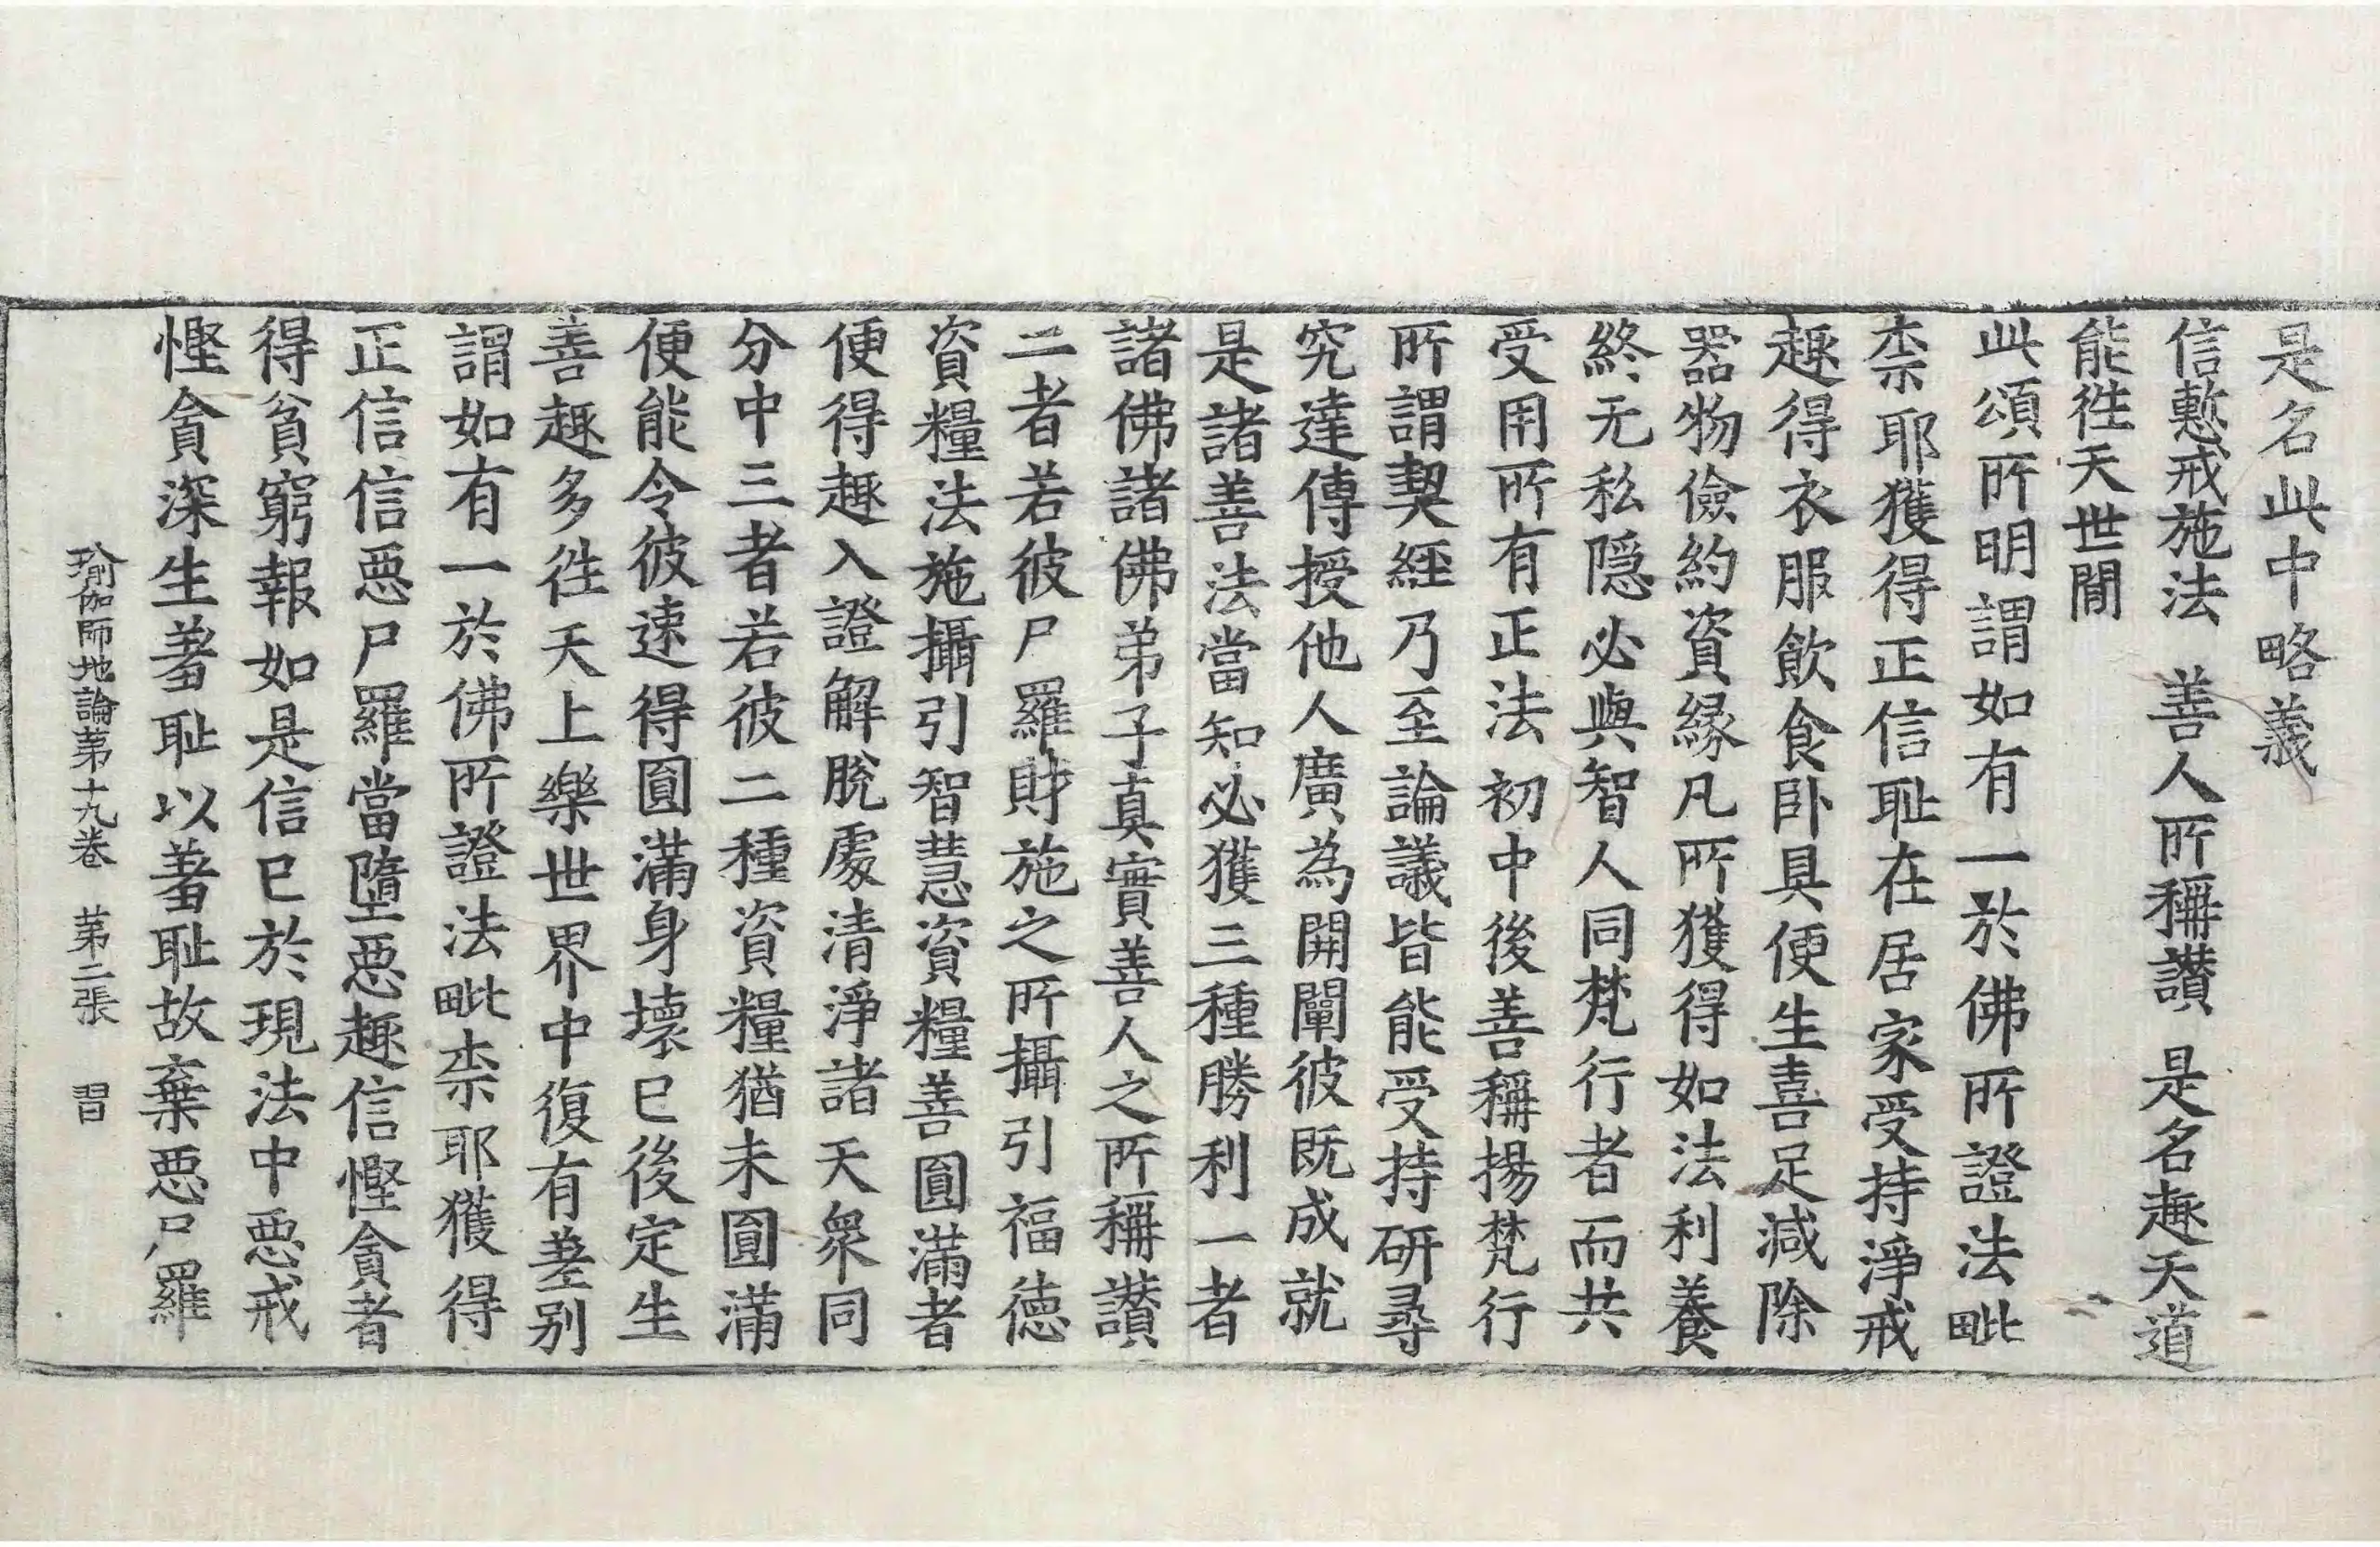 是名此中略義
信慙戒施法　善人所稱讃　是名趣天道
能徃天世閒
此頌所明謂如有一於佛所證法毗
柰耶獲得正信耻在居家受持淨戒
趣得衣服飲食卧具便生喜足減除
器物儉約資緣凡所獲得如法利養
終无私隱必與智人同梵行者而共
受用所有正法初中後善稱揚梵行
所謂契經乃至論議皆能受持研尋
究達傳授他人廣為開闡彼既成就
是諸善法當知必獲三種勝利一者
諸佛諸佛弟子真實善人之所稱讃
二者若彼尸羅財施之所攝引福德
資糧法施攝引智慧資糧善圓滿者
便得趣入證解脫處清淨諸天衆同
分中三者若彼二種資糧猶未圓滿
便能令彼速得圓滿身壞已後定生
善趣多徃天上樂世界中復有差别
謂如有一於佛所證法毗柰耶獲得
正信信惡尸羅當墮惡趣信慳貪者
得貧窮報如是信已於現法中惡戒
慳貪深生羞耻以羞耻故棄惡尸羅
瑜伽師地論苐十九卷　苐二張　習